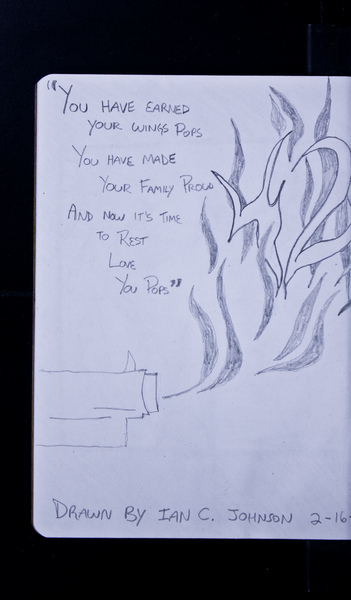 "You have earned
your wings Pops
You have made
Your Family Proud
And now it's time
to Rest
Love
You Pops"
Drawn by Ian C. Johnson 2-16-